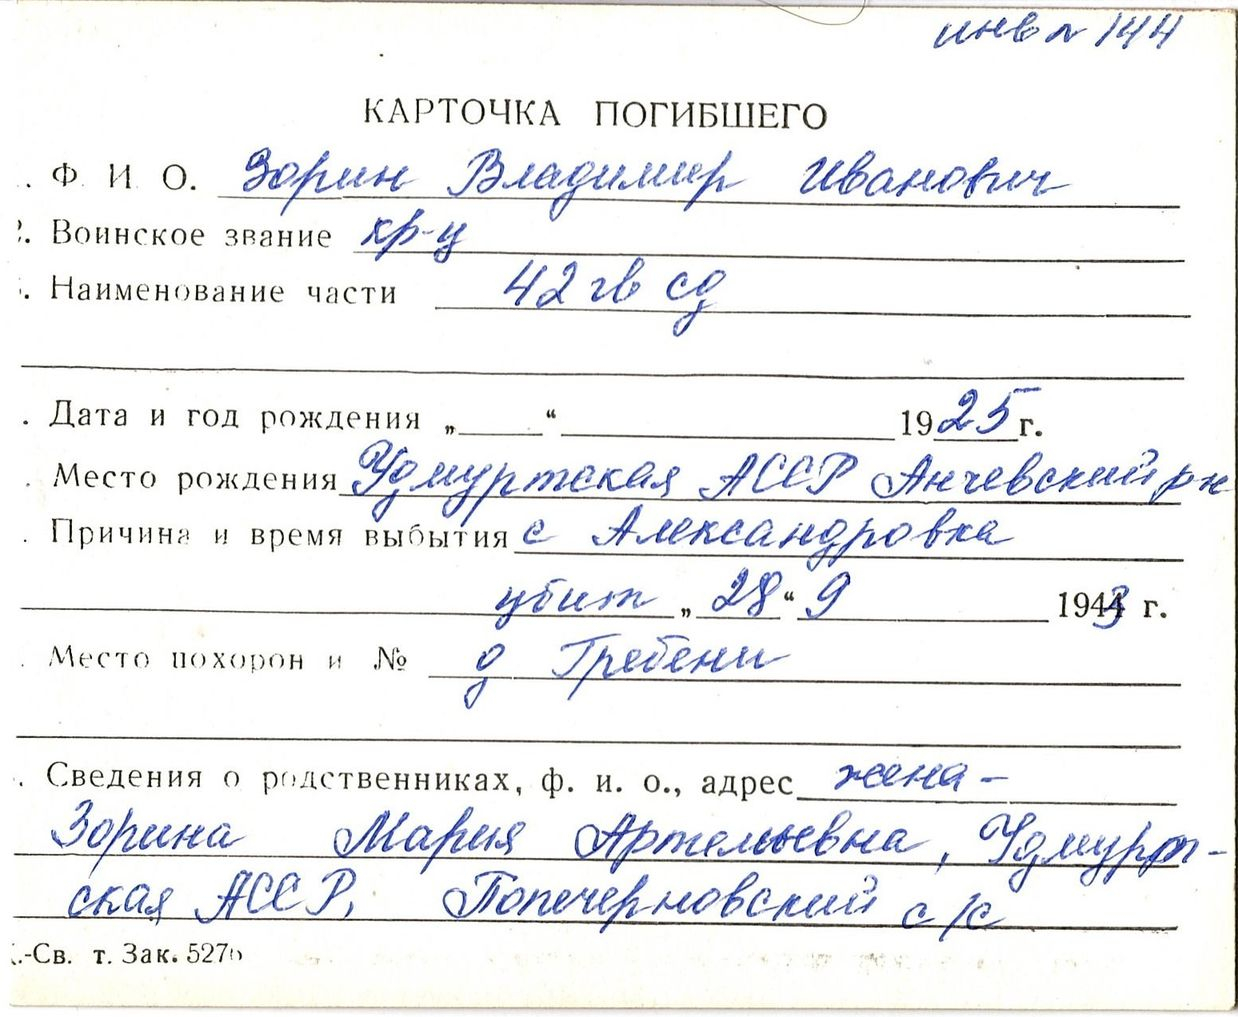 инв № 144
КАРТОЧКА ПОГИБШЕГО
. Ф. И. О. Зорин Владимир Иванович
2. Воинское звание кр-ц
. Наименование части 42 гв сд
. Дата и год рождения „ “ 1925 г.
. Место рождения Удмуртская АССР Анчевский рн
. Причина и время выбытия с Александровка
убит „28“ 9 1943 г.
. Место похорон и № д Гребени
. Сведения о родственниках, ф. и. о., адрес жена -
Зорина Мария Артемьевна, Удмурт-
ская АССР, Попечерновский с/с
.-Св. т. Зак. 527